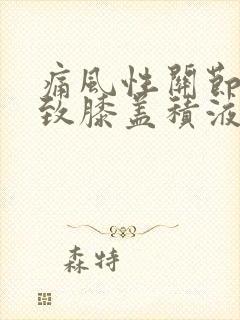 痛風性關節
致膝蓋積液
森特